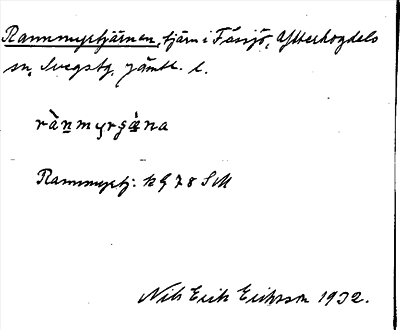 Rammyrtjärnen, tjärn i Fåssjö, Ytterhogdals
sn, Svegs tg, Jämtl. l.
rànmyrʂæ̀na
Rammyrtj: kg 78 SM
Nils Erik Eriksson 1932.